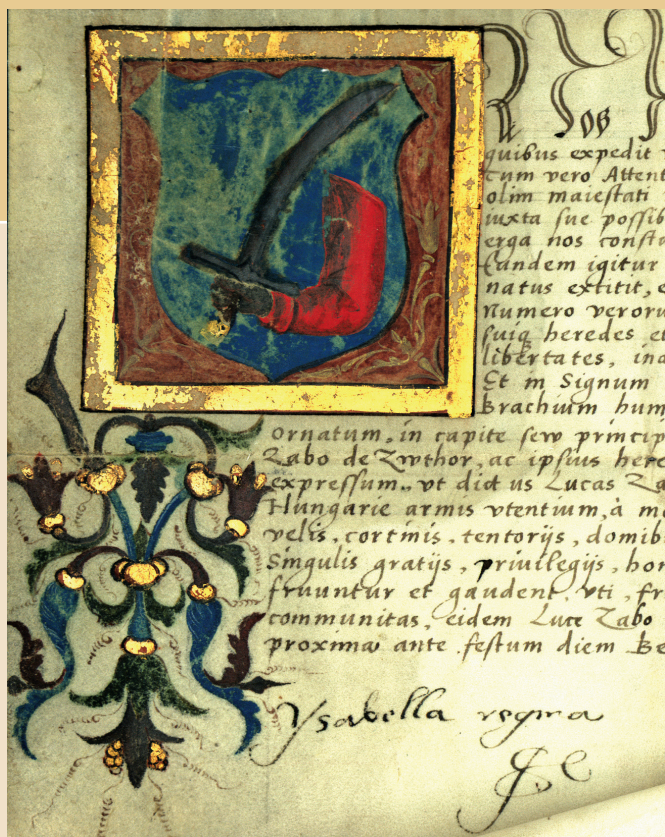 os
quibus expedit
cum vero Attent
olim maiestati
iuxta sue possib
erga nos consta
Eandem igitur
natus extitit, e
Numero veroru
suiq heredes et
libertates, ind
Et in Signum
Brachium hum
ornatum, in capite sew princip
Zabo de Zwthor, ac ipsius here
expressum, vt dict us Lucas Za
Hungarie armis vtentium, à mo
velis, cortinis, tentorijs, domib
Singulis gratijs, priuilegijs, hon
fruuntur et gaudent, vti, fr
communitas, eidem Luce Zabo
proxima ante festum diem Be
Ysabella regina